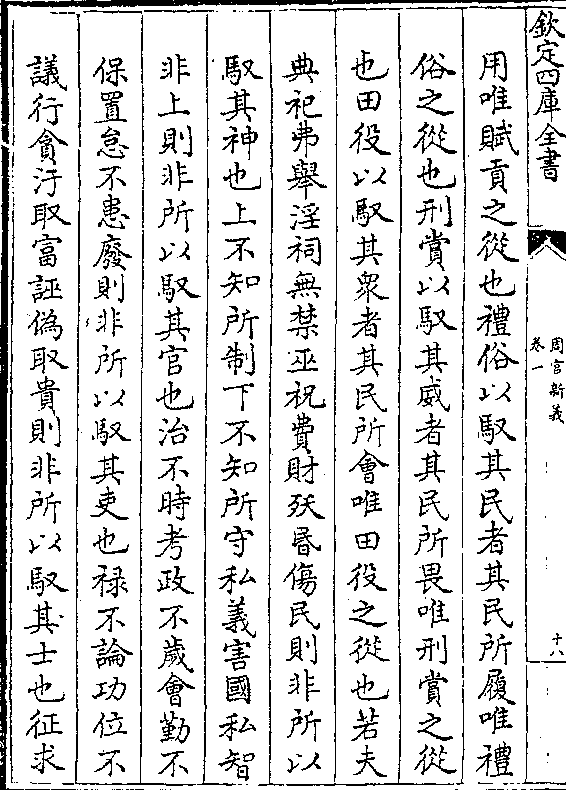 欽定四庫全書
周官新義
卷一
十八
用唯賦貢之從也禮俗以馭其民者其民所履唯禮
俗之從也刑賞以馭其威者其民所畏唯刑賞之從
也田役以馭其衆者其民所會唯田役之從也若夫
典祀弗舉淫祠無禁巫祝費財殀昬傷民則非所以
馭其神也上不知所制下不知所守私義害國私智
非上則非所以馭其官也治不時考政不歲會勤不
保置怠不患廢則非所以馭其吏也祿不論功位不
議行貪汙取富誣偽取貴則非所以馭其士也征求